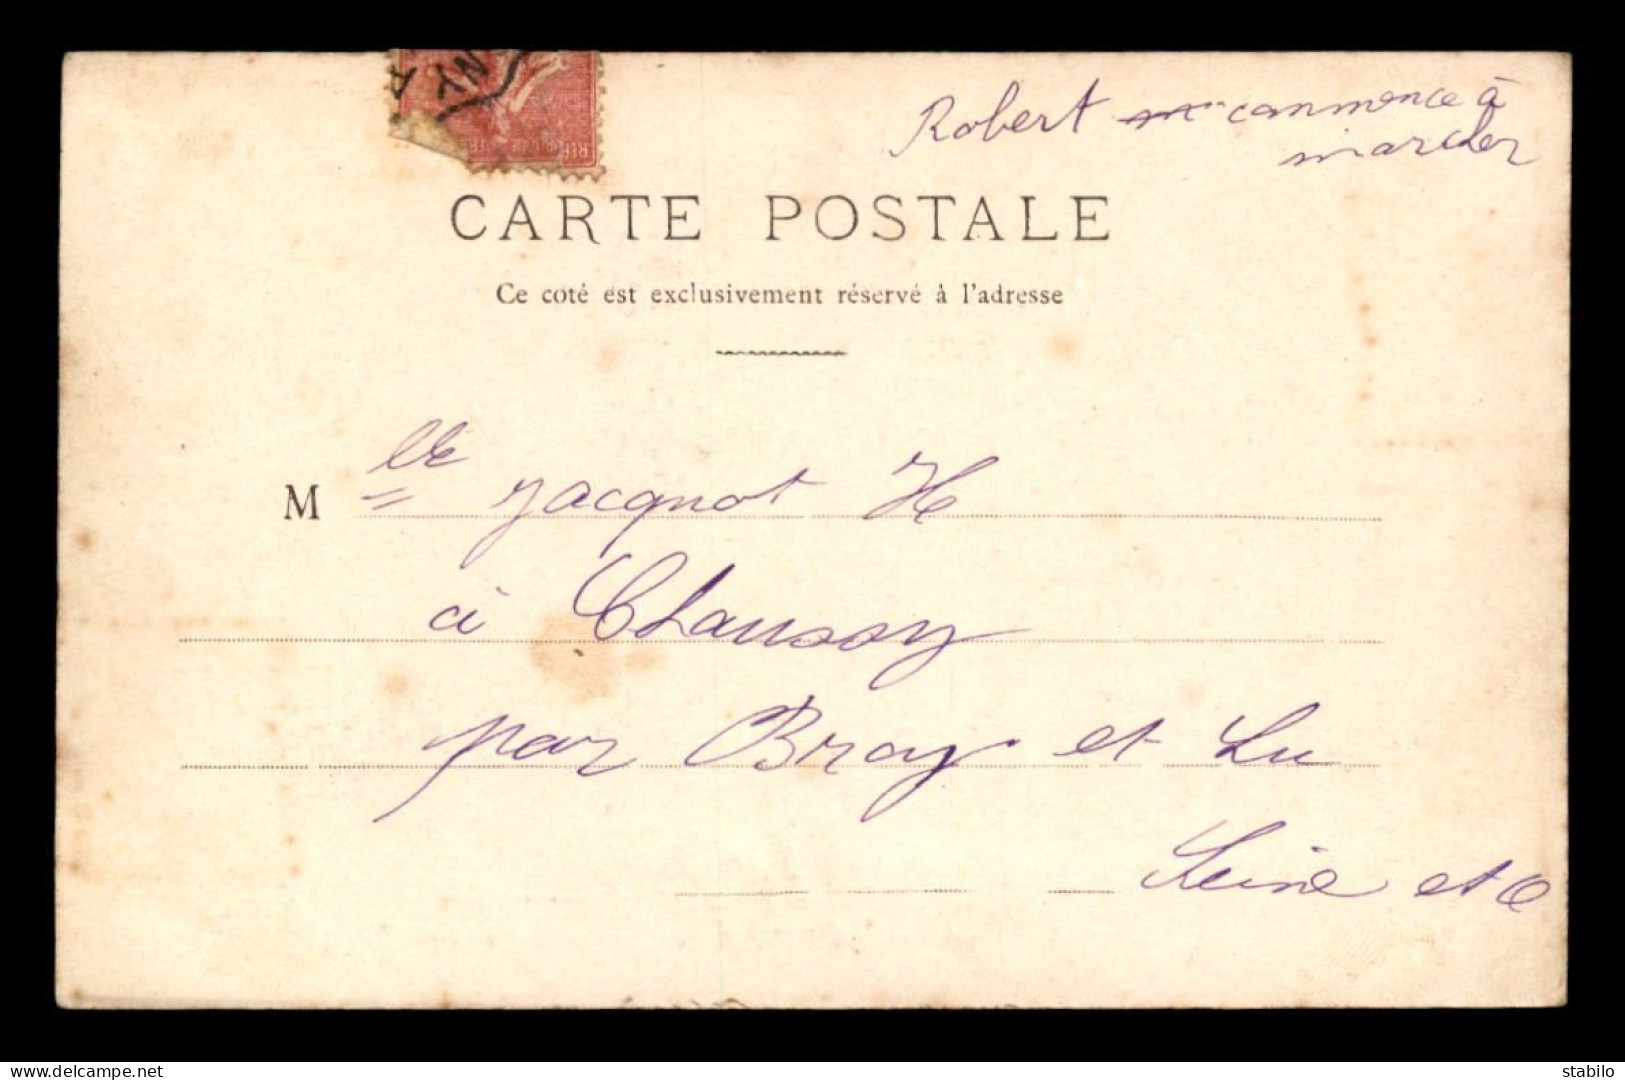 NY
Robert commence à
marcher
CARTE POSTALE
Ce coté est exclusivement réservé à l'adresse
Mlle Jacquot H
à Chaussoy
par Bray et Lu
Seine et O
www.delcampe.net
stabilo